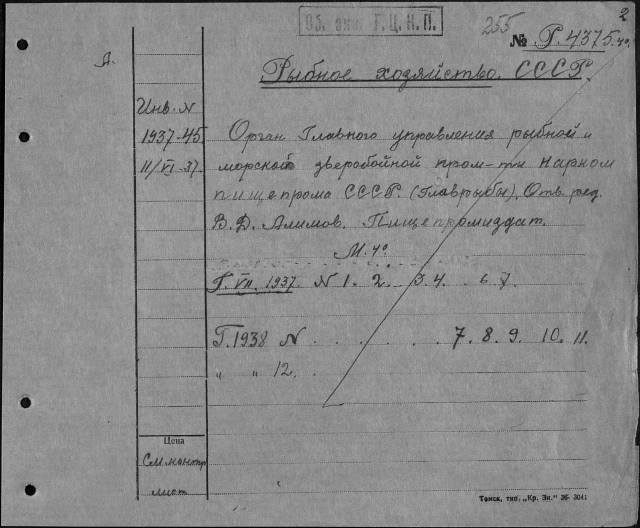 Об. экз. Г.Ц.К.П.
255
2
№ Р.4375.4°
Л.
Рыбное хозяйство. СССР.
Инв. N
1937-45
11/VI-37.
Орган Главного управления рыбной и
морской зверобойной пром-ти Нарком
пищепрома СССР. (Главрыбы), Отв. ред.
В.Д. Алимов. Пищепромиздат.
М. 4°
Г. VII. 1937. N 1. 2. 3.4. .6.7.
Г. 1938 N . . . . . . 7. 8. 9. 10. 11.
„ „ 12. .
Цена
См.
лист
Томск, тип. „Кр. Зн.“ 36- 3041